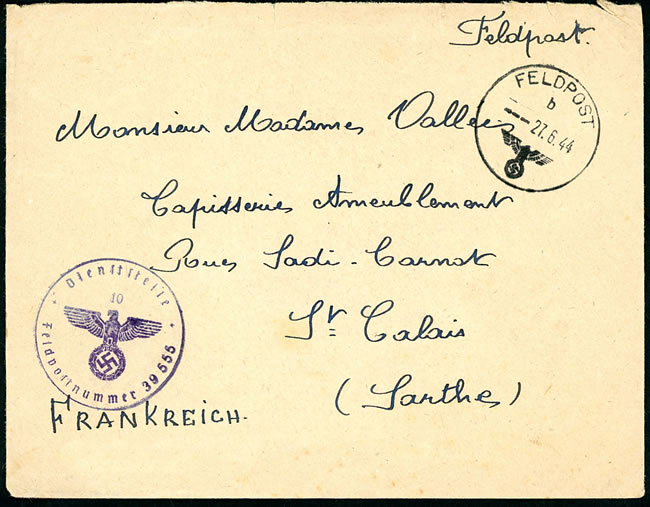 Feldpost.
FELDPOST
b
27.6.44
Monsieur Madames Vallée
Tapisserie Ameublement
Rue Sadi-Carnot
St Calais
(Sarthe)
Dienststelle
10
Feldpostnummer 39555
FRANKREICH.